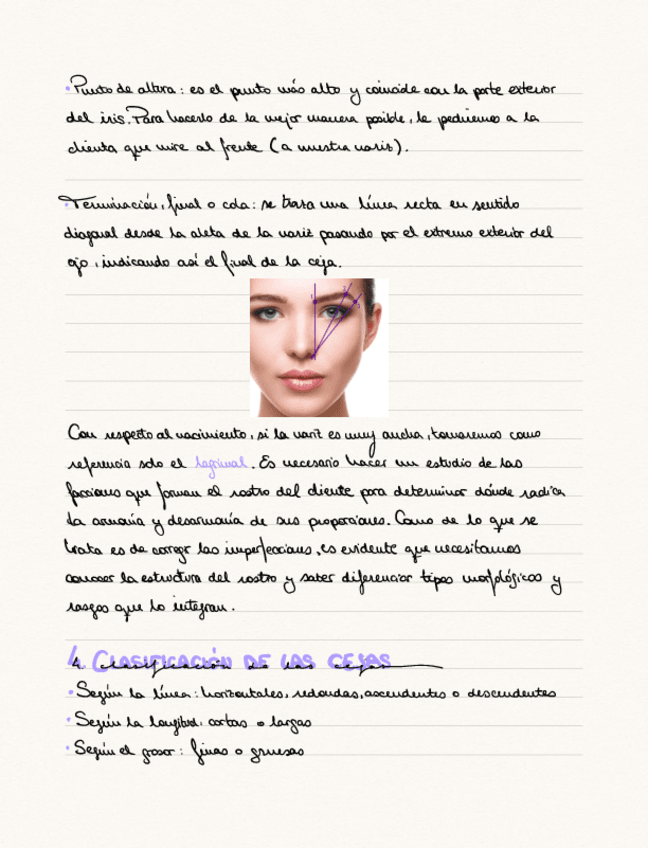 · Punto de altura: es el punto más alto y coincide con la parte exterior
del iris. Para hacerlo de la mejor manera posible, le pediremos a la
clienta que mire al frente (a nuestra nariz).
· Terminación, final o cola: se traza una línea recta en sentido
diagonal desde la aleta de la nariz pasando por el extremo exterior del
ojo, indicando así el final de la ceja.
1 2 3
Con respecto al nacimiento, si la nariz es muy ancha, tomaremos como
referencia solo el lagrimal. Es necesario hacer un estudio de las
facciones que forman el rostro del cliente para determinar dónde radica
la armonía y desarmonía de sus proporciones. Como de lo que se
trata es de corregir las imperfecciones, es evidente que necesitamos
conocer la estructura del rostro y saber diferenciar tipos morfológicos y
rasgos que lo integran.
4. CLASIFICACIÓN DE LAS CEJAS
4. clasificación de las cejas
· Según la línea: horizontales, redondas, ascendentes o descendentes
· Según la longitud: cortas o largas
· Según el grosor: finas o gruesas